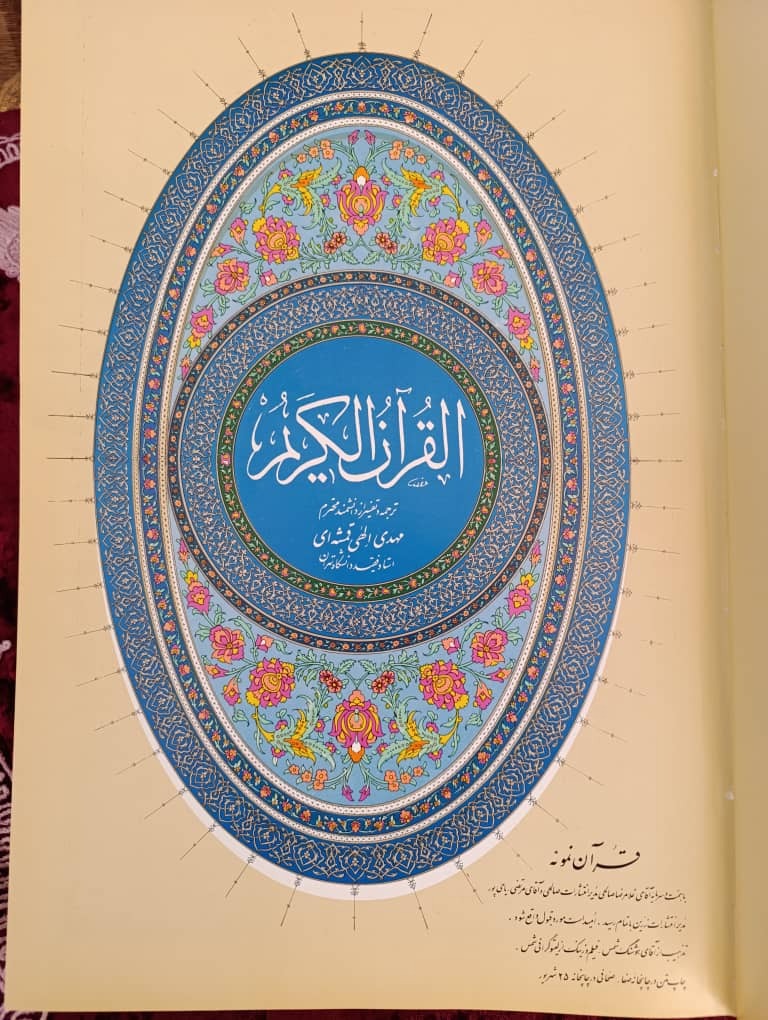 القُرآنُ الكَريمُ
ترجمه و تفسیر از دانشمند محترم
مهدی الهی قمشه‌ای
استاد فقید دانشگاه تهران
قرآن نمونه
با همت و سرمایه آقای غلامرضا صالحی مدیر انتشارات صالحی و آقای مرتضی بابی پور
مدیر انتشارات زرین با تمام رسید. امید است مورد قبول واقع شود.
تذهیب از آقای هوشنگ شمس. فیلم و زینک از لیتوگرافی شمس.
چاپ متن در چاپخانه صفا. صحافی در چاپخانه ۲۵ شهریور